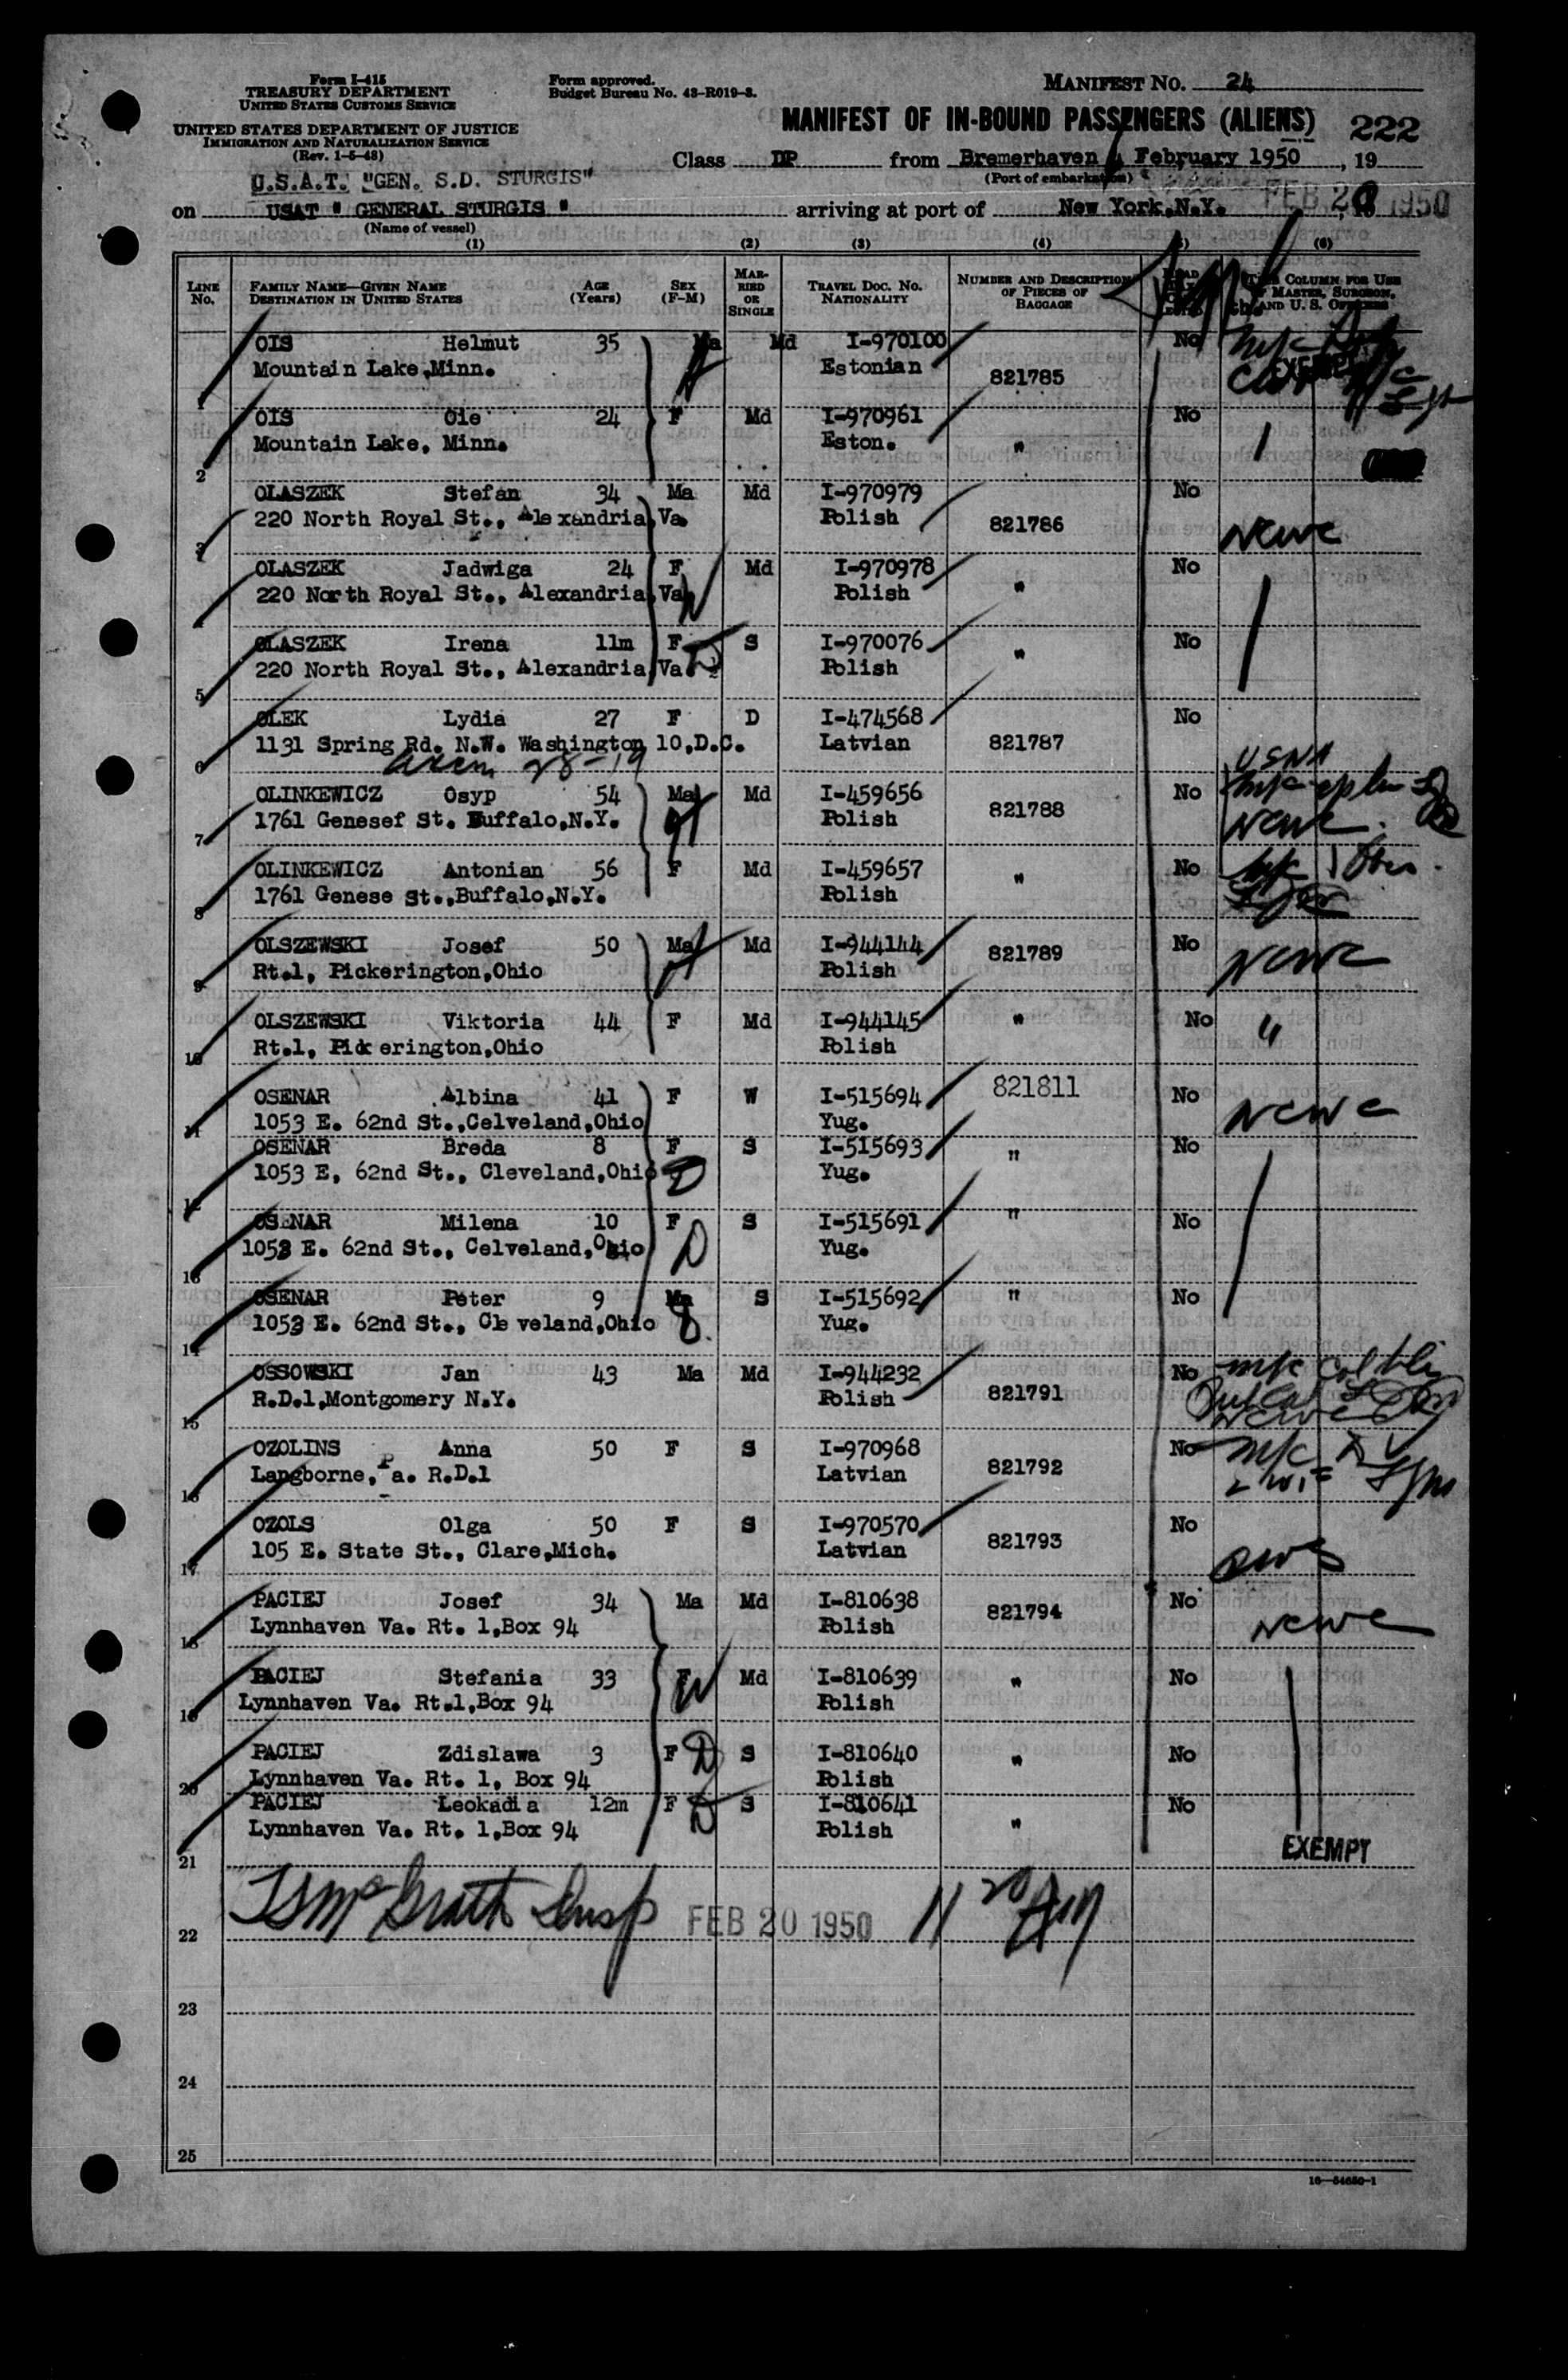 Form I-415
TREASURY DEPARTMENT
UNITED STATES CUSTOMS SERVICE
UNITED STATES DEPARTMENT OF JUSTICE
IMMIGRATION AND NATURALIZATION SERVICE
(Rev. 1-5-48)
Form approved.
Budget Bureau No. 43-R019-3.
MANIFEST NO. 24
MANIFEST OF IN-BOUND PASSENGERS (ALIENS) 222
Class DP from Bremerhaven February 1950, 19
(Port of embarkation)
U.S.A.T. "GEN. S.D. STURGIS"
on USAT " GENERAL STURGIS " arriving at port of New York,N.Y. FEB 20 1950
(Name of vessel)
(1) (2) (3) (4) (5) (6)
LINE No. FAMILY NAME—GIVEN NAME DESTINATION IN UNITED STATES AGE (Years) SEX (F-M) MARRIED OR SINGLE TRAVEL DOC. NO. NATIONALITY NUMBER AND DESCRIPTION OF PIECES OF BAGGAGE THIS COLUMN FOR USE OF MASTER, SURGEON, AND U. S. OFFICERS
OIS Helmut 35 Ma Md I-970100 No
Mountain Lake,Minn. Estonian 821785 EXEMPT
1
OIS Oie 24 F Md I-970961 No
Mountain Lake, Minn. Eston. "
2
OLASZEK Stefan 34 Ma Md I-970979 No
220 North Royal St., Alexandria,Va. Polish 821786 NCWC
3
OLASZEK Jadwiga 24 F Md I-970978 No
220 North Royal St., Alexandria,Va. Polish "
4
OLASZEK Irena 11m F S I-970076 No
220 North Royal St., Alexandria,Va. Polish "
5
OLEK Lydia 27 F D I-474568 No
1131 Spring Rd. N.W. Washington 10,D.C. Latvian 821787
6 USNA
OLINKEWICZ Osyp 54 Ma Md I-459656 No
1761 Genesef St. Buffalo,N.Y. Polish 821788 NCWC
7
OLINKEWICZ Antonian 56 F Md I-459657 No
1761 Genese St.,Buffalo,N.Y. Polish "
8
OLSZEWSKI Josef 50 Ma Md I-944144 No
Rt.1, Pickerington,Ohio Polish 821789 NCWC
9
OLSZEWSKI Viktoria 44 F Md I-944145 " No "
Rt.1, Pick erington,Ohio Polish
10
OSENAR Albina 41 F W I-515694 821811 No
1053 E. 62nd St.,Celveland,Ohio Yug. NCWC
11
OSENAR Breda 8 F S I-515693 " No
1053 E, 62nd St., Cleveland,Ohio Yug.
12
OSENAR Milena 10 F S I-515691 " No
1053 E. 62nd St., Celveland,Ohio Yug.
13
OSENAR Peter 9 Ma S I-515692 " No
1053 E. 62nd St., Cle veland,Ohio Yug.
14
OSSOWSKI Jan 43 Ma Md I-944232 No
R.D.1,Montgomery N.Y. Polish 821791 NCWC
15
OZOLINS Anna 50 F S I-970968 No
Langborne, Pa. R.D.1 Latvian 821792
16
OZOLS Olga 50 F S I-970570 No
105 E. State St., Clare,Mich. Latvian 821793
17
PACIEJ Josef 34 Ma Md I-810638 No
Lynnhaven Va. Rt. 1,Box 94 Polish 821794 NCWC
18
PACIEJ Stefania 33 F Md I-810639 No
Lynnhaven Va. Rt.1,Box 94 Polish "
19
PACIEJ Zdislawa 3 F D S I-810640 No
Lynnhaven Va. Rt. 1, Box 94 Polish "
20
PACIEJ Leokadia 12m F D S I-810641 No
Lynnhaven Va. Rt. 1,Box 94 Polish "
21 EXEMPT
22 McGrath Insp FEB 20 1950 11 20 AM
23
24
25
16—54650-1